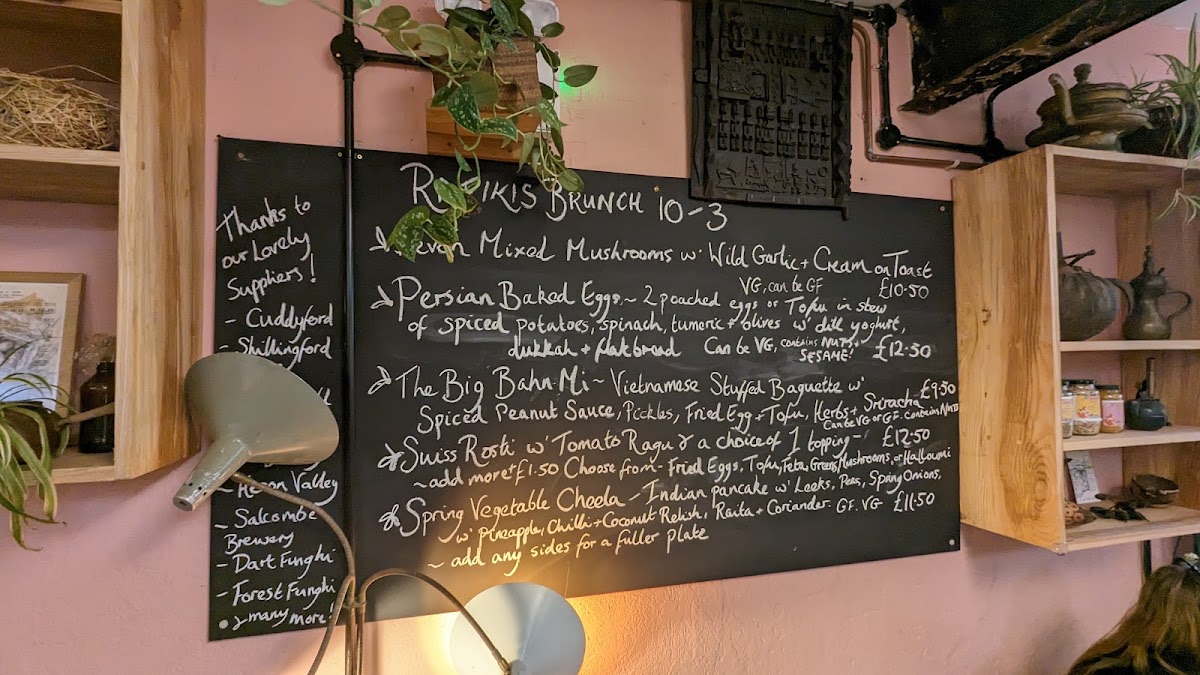 Thanks to
our Lovely
Suppliers!
- Cuddyford
- Shillingford
Valley
- Salcombe
Brewery
- Dart Funghi
- Forest Funghi
& many more!
BRUNCH 10-3
Mixed Mushrooms w' Wild Garlic + Cream on Toast
VG, can be GF £10.50
Persian Baked Eggs ~ 2 poached eggs or Tofu in stew
of spiced potatoes, spinach, tumeric + olives w' dill yoghurt,
dukkah + flatbread Can be VG, contains NUTS + SESAME! £12.50
The Big Bahn Mi ~ Vietnamese Stuffed Baguette w' £9.50
Spiced Peanut Sauce, Pickles, Fried Egg + Tofu, Herbs + Sriracha
Can be VG or GF. contains NUTS
Swiss Rosti w' Tomato Ragu & a choice of 1 topping - £12.50
~ add more + £1.50 Choose from - Fried Eggs, Tofu, Feta, Greens, Mushrooms, or Halloumi
Spring Vegetable Cheela - Indian pancake w' Leeks, Peas, Spring Onions,
w' Pineapple, Chilli + Coconut Relish, Raita + Coriander. GF. VG £11.50
~ add any sides for a fuller plate